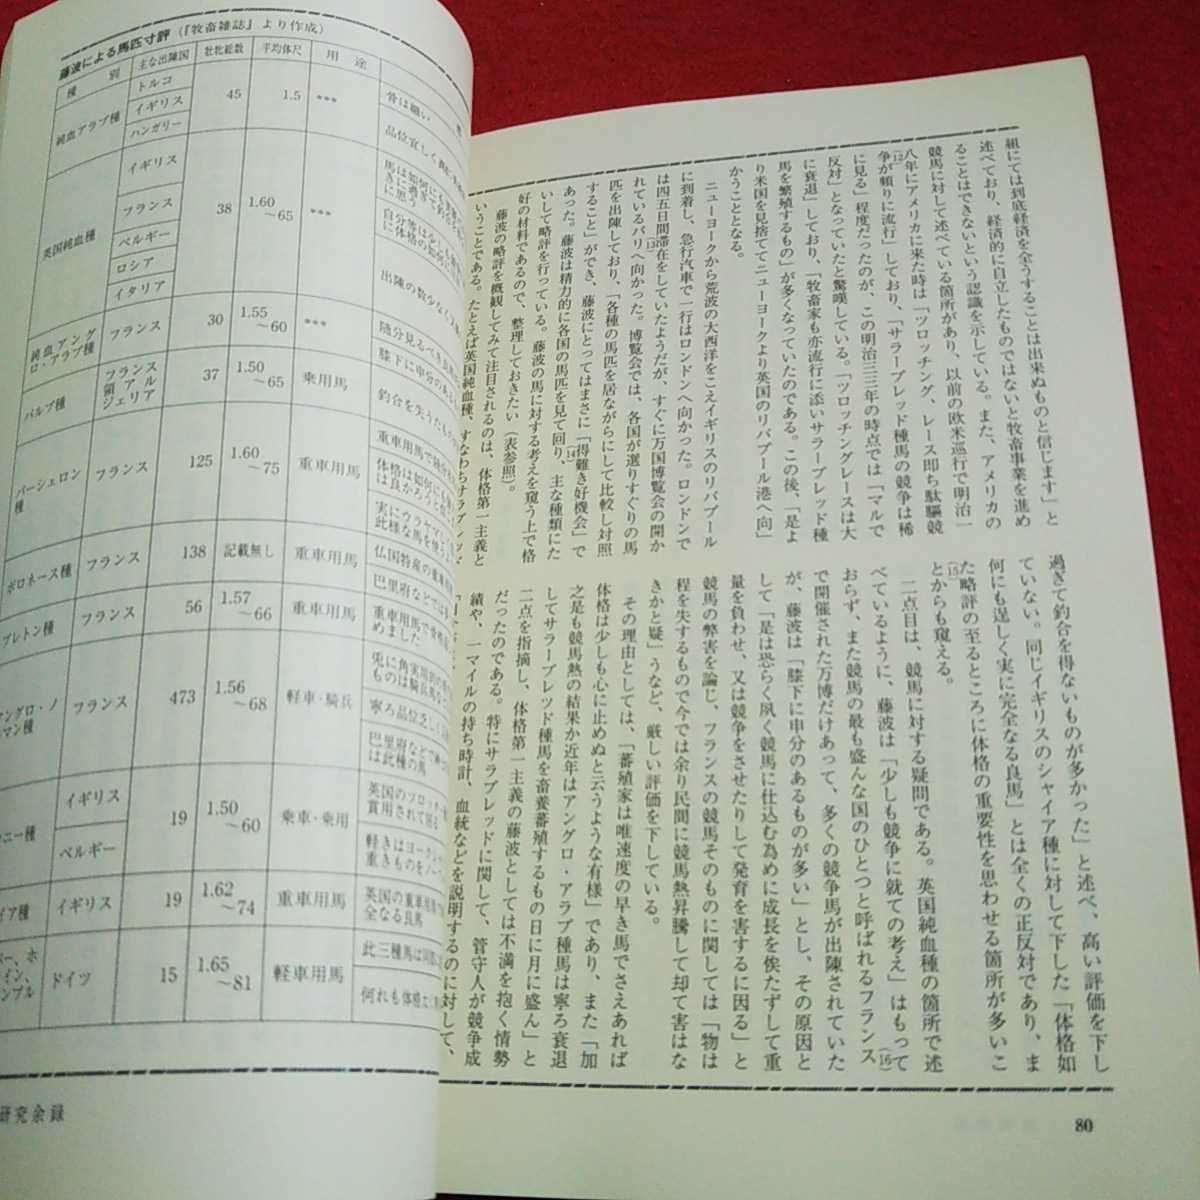 藤波による馬匹寸評(『牧畜雑誌』より作成)
種 別
主な出陳国
牡牝総数
平均体尺
用 途
純血アラブ種
トルコ
イギリス
ハンガリー
45
1.5
***
骨は細い
品位宜しく
英国純血種
イギリス
フランス
ベルギー
ロシア
イタリア
38
1.60
～65
***
馬は如何にも
きに過ぎて釣合を
に思う
自分等はどしも
に体格の如何に
出陳の数少なく
純血アング
ロ・アラブ種
フランス
30
1.55
～60
***
随分見るべき良馬
バルブ種
フランス
領アル
ジェリア
37
1.50
～65
乗用馬
膝下に申分のある
釣合を失うたもの
パーシュロン
種
フランス
125
1.60
～75
重車用馬
重車用馬で
体格は如何にも
は良かろうと
実にウラヤマ
此様な馬を
ボロネース種
フランス
138
記載無し
重車用馬
仏国特産の重車用
巴里府などでは
ブレトン種
フランス
56
1.57
～66
重車用馬
重車用馬で骨格
めました
アングロ・ノ
ルマン種
フランス
473
1.56
～68
軽車・騎兵
兎に角実用的の
ものは騎兵馬
寧ろ品位乏しく
巴里府などで
は此種の馬
ニー種
イギリス
ベルギー
19
1.50
～60
乗車・乗用
英国のツロッ
賞用されて居る
軽きはヨーク
重きものをノー
イア種
イギリス
19
1.62
～74
重車用馬
英国の重車用馬
全なる良馬
ー、ホ
イン、
ンブル
ドイツ
15
1.65
～81
軽車用馬
此三種馬は同
何れも体格
研究余録
組にては到底経済を全うすることは出来ぬものと信じます」と
述べており、経済的に自立したものではないと牧畜事業を進め
ることはできないという認識を示している。また、アメリカの
競馬に対して述べている箇所があり、以前の欧米巡行で明治一
八年にアメリカに来た時は「ツロッチング、レース即ち駄驅競
争が頗りに流行」(12)しており、「サラーブレッド種馬の競争は稀
に見る」程度だったのが、この明治三三年の時点では「マルで
反対」となっていたと驚嘆している。「ツロッチングレースは大
に衰退」しており、「牧畜家も亦流行に添いサラーブレッド種
馬を繁殖するもの」が多くなっていたのである。この後、「是よ
り米国を見捨ててニューヨークより英国のリバプール港へ向」
かうこととなる。
ニューヨークから荒波の大西洋をこえイギリスのリバプール
に到着し、急行汽車で一行はロンドンへ向かった。ロンドンで
は四五日間滞在をしていたようだが、すぐに万国博覧会の開か
れているパリへ向かった。(13)博覧会では、各国が選りすぐりの馬
匹を出陳しており、「各種の馬匹を居ながらにして比較し対照
すること」ができ、藤波にとってはまさに「得難き好機会」(14)で
あった。藤波は精力的に各国の馬匹を見て回り、主な種類にた
いして略評を行っている。藤波の馬に対する考えを窺う上で格
好の材料であるので、整理しておきたい(表参照)。
藤波の略評を概観してみて注目されるのは、体格第一主義と
いうことである。たとえば英国純血種、すなわちサラブレッド
過ぎて釣合を得ないものが多かった」と述べ、高い評価を下し
ていない。同じイギリスのシャイア種に対して下した「体格如
何にも逞しく実に完全なる良馬」とは全くの正反対であり、ま
た略評の至るところに体格の重要性を思わせる箇所が多いこ
とからも窺える。(15)
二点目は、競馬に対する疑問である。英国純血種の箇所で述
べているように、藤波は「少しも競争に就ての考え」(16)はもって
おらず、また競馬の最も盛んな国のひとつと呼ばれるフランス
で開催された万博だけあって、多くの競争馬が出陳されていた
が、藤波は「膝下に申分のあるものが多い」とし、その原因と
して「是は恐らく夙く競馬に仕込む為めに成長を俟たずして重
量を負わせ、又は競争をさせたりして発育を害するに因る」と
競馬の弊害を論じ、フランスの競馬そのものに関しては「物は
程を失するもので今では余り民間に競馬熱昇騰して却て害はな
きかと疑」うなど、厳しい評価を下している。
その理由としては、「蕃殖家は唯速度の早き馬でさえあれば
体格は少しも心に止めぬと云うような有様」であり、また「加
之是も競馬熱の結果か近年はアングロ・アラブ種馬は寧ろ衰退
してサラーブレッド種馬を畜養蕃殖するもの日に月に盛ん」と
二点を指摘し、体格第一主義の藤波としては不満を抱く情勢
だったのである。特にサラブレッドに関して、管守人が競争成
績や、一マイルの持ち時計、血統などを説明するのに対して、
80